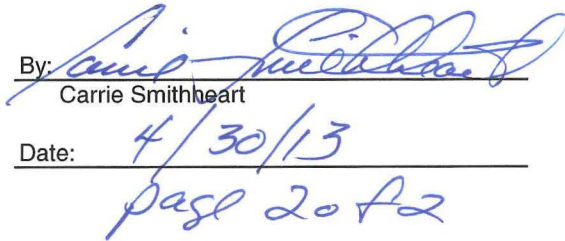 By: Carrie Smithheart
Carrie Smithheart
Date: 4/30/13
page 2 of 2